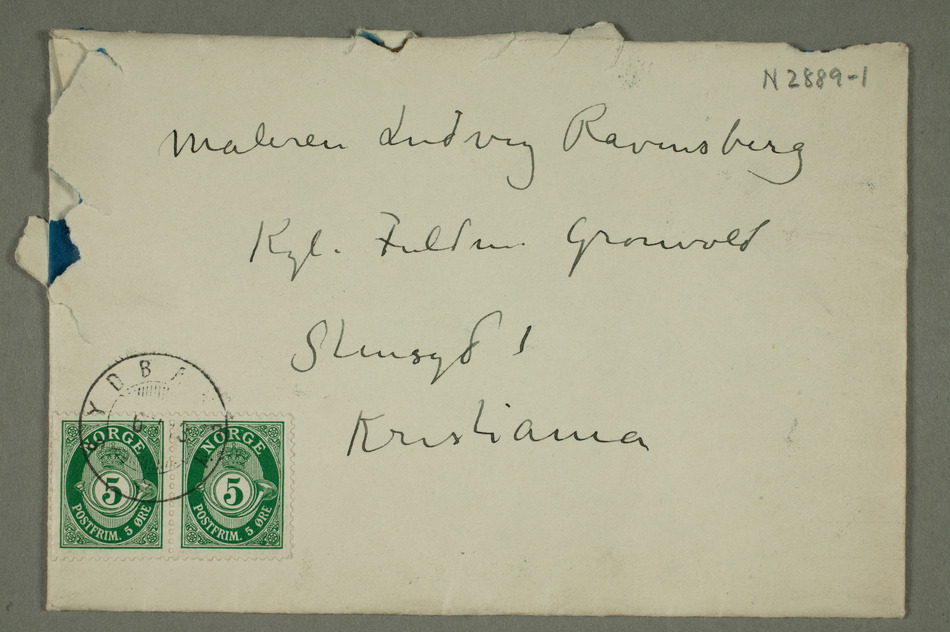 N 2889-1
Maleren Ludvig Ravensberg
Kgl. Fuldm. Gronvold
Stensgd 1
Kristiania
NORGE
5
POSTFRIM. 5 ØRE
NORGE
5
POSTFRIM. 5 ØRE